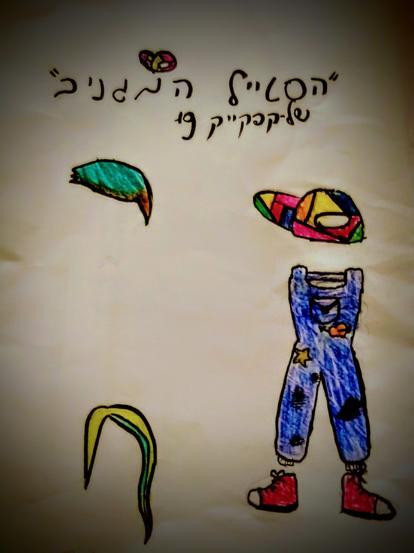 "הסטייל המגניב"
של קפקייק 19